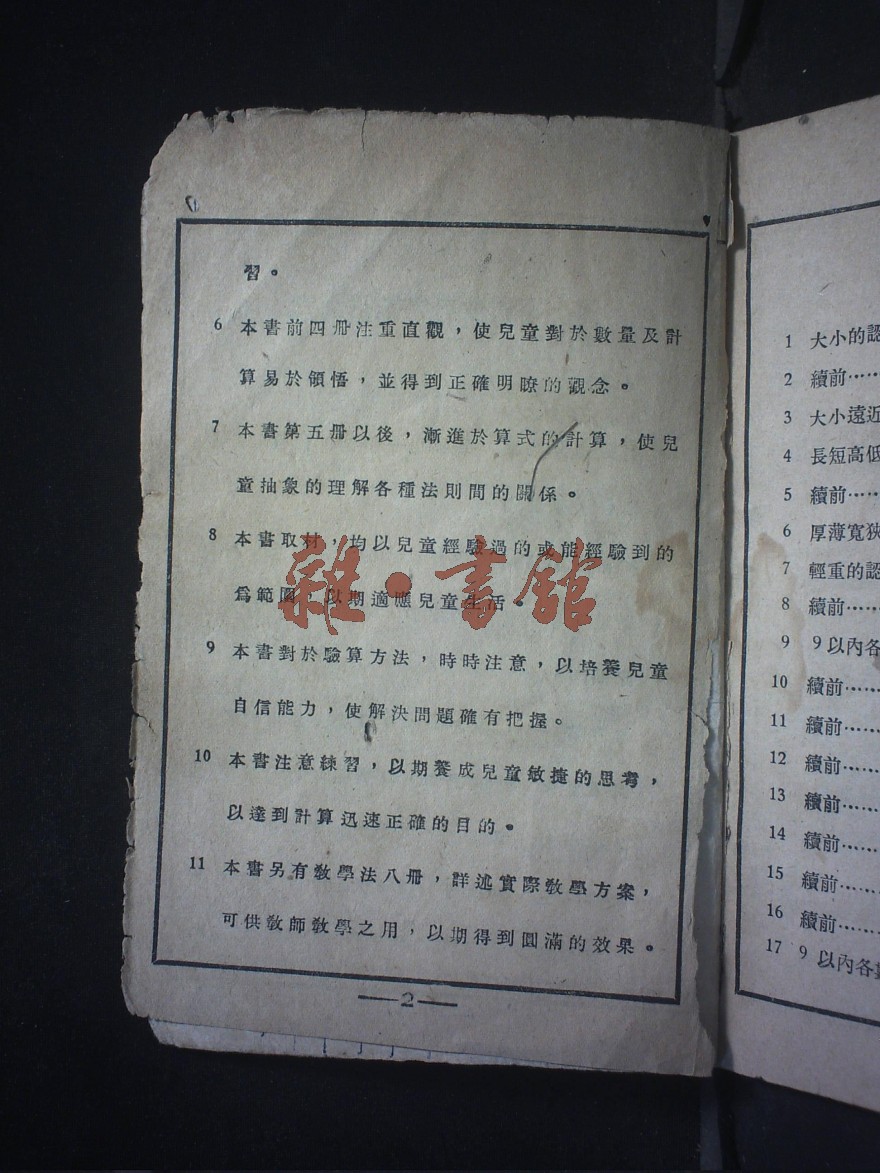 習。
6 本書前四册注重直觀，使兒童對於數量及計
算易於領悟，並得到正確明瞭的觀念。
7 本書第五册以後，漸進於算式的計算，使兒
童抽象的理解各種法則間的關係。
8 本書取材，均以兒童經驗過的或能經驗到的
爲範圍，以期適應兒童生活。
9 本書對於驗算方法，時時注意，以培養兒童
自信能力，使解決問題確有把握。
10 本書注意練習，以期養成兒童敏捷的思考，
以達到計算迅速正確的目的。
11 本書另有教學法八册，詳述實際教學方案，
可供教師教學之用，以期得到圓滿的效果。
—2—
雜·書館
1 大小的認
2 續前……
3 大小遠近
4 長短高低
5 續前……
6 厚薄寬狹
7 輕重的認
8 續前……
9 9以內各
10 續前……
11 續前……
12 續前……
13 續前……
14 續前……
15 續前……
16 續前……
17 9以內各數